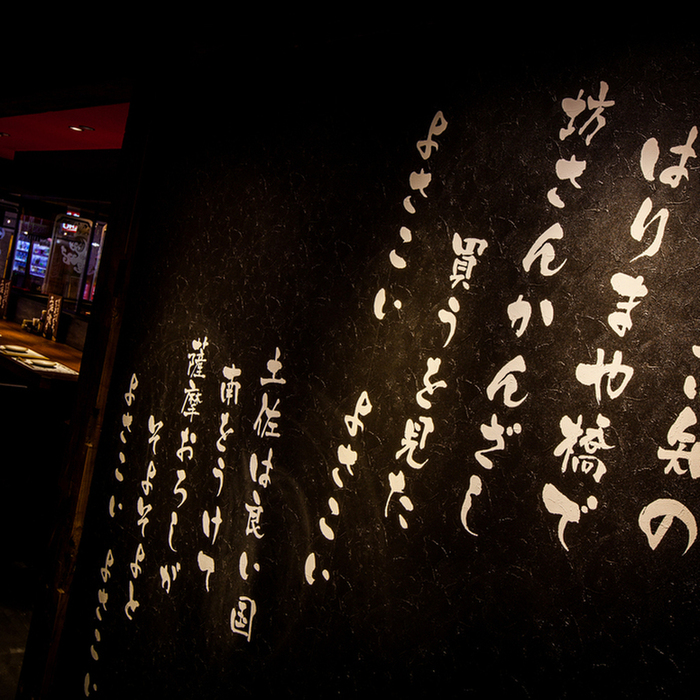 知の
はりまや橋で
坊さんかんざし
買うを見た
よさこい よさこい
土佐は良い国
南をうけて
薩摩おろしが
そよそよと
よさこい よさこい